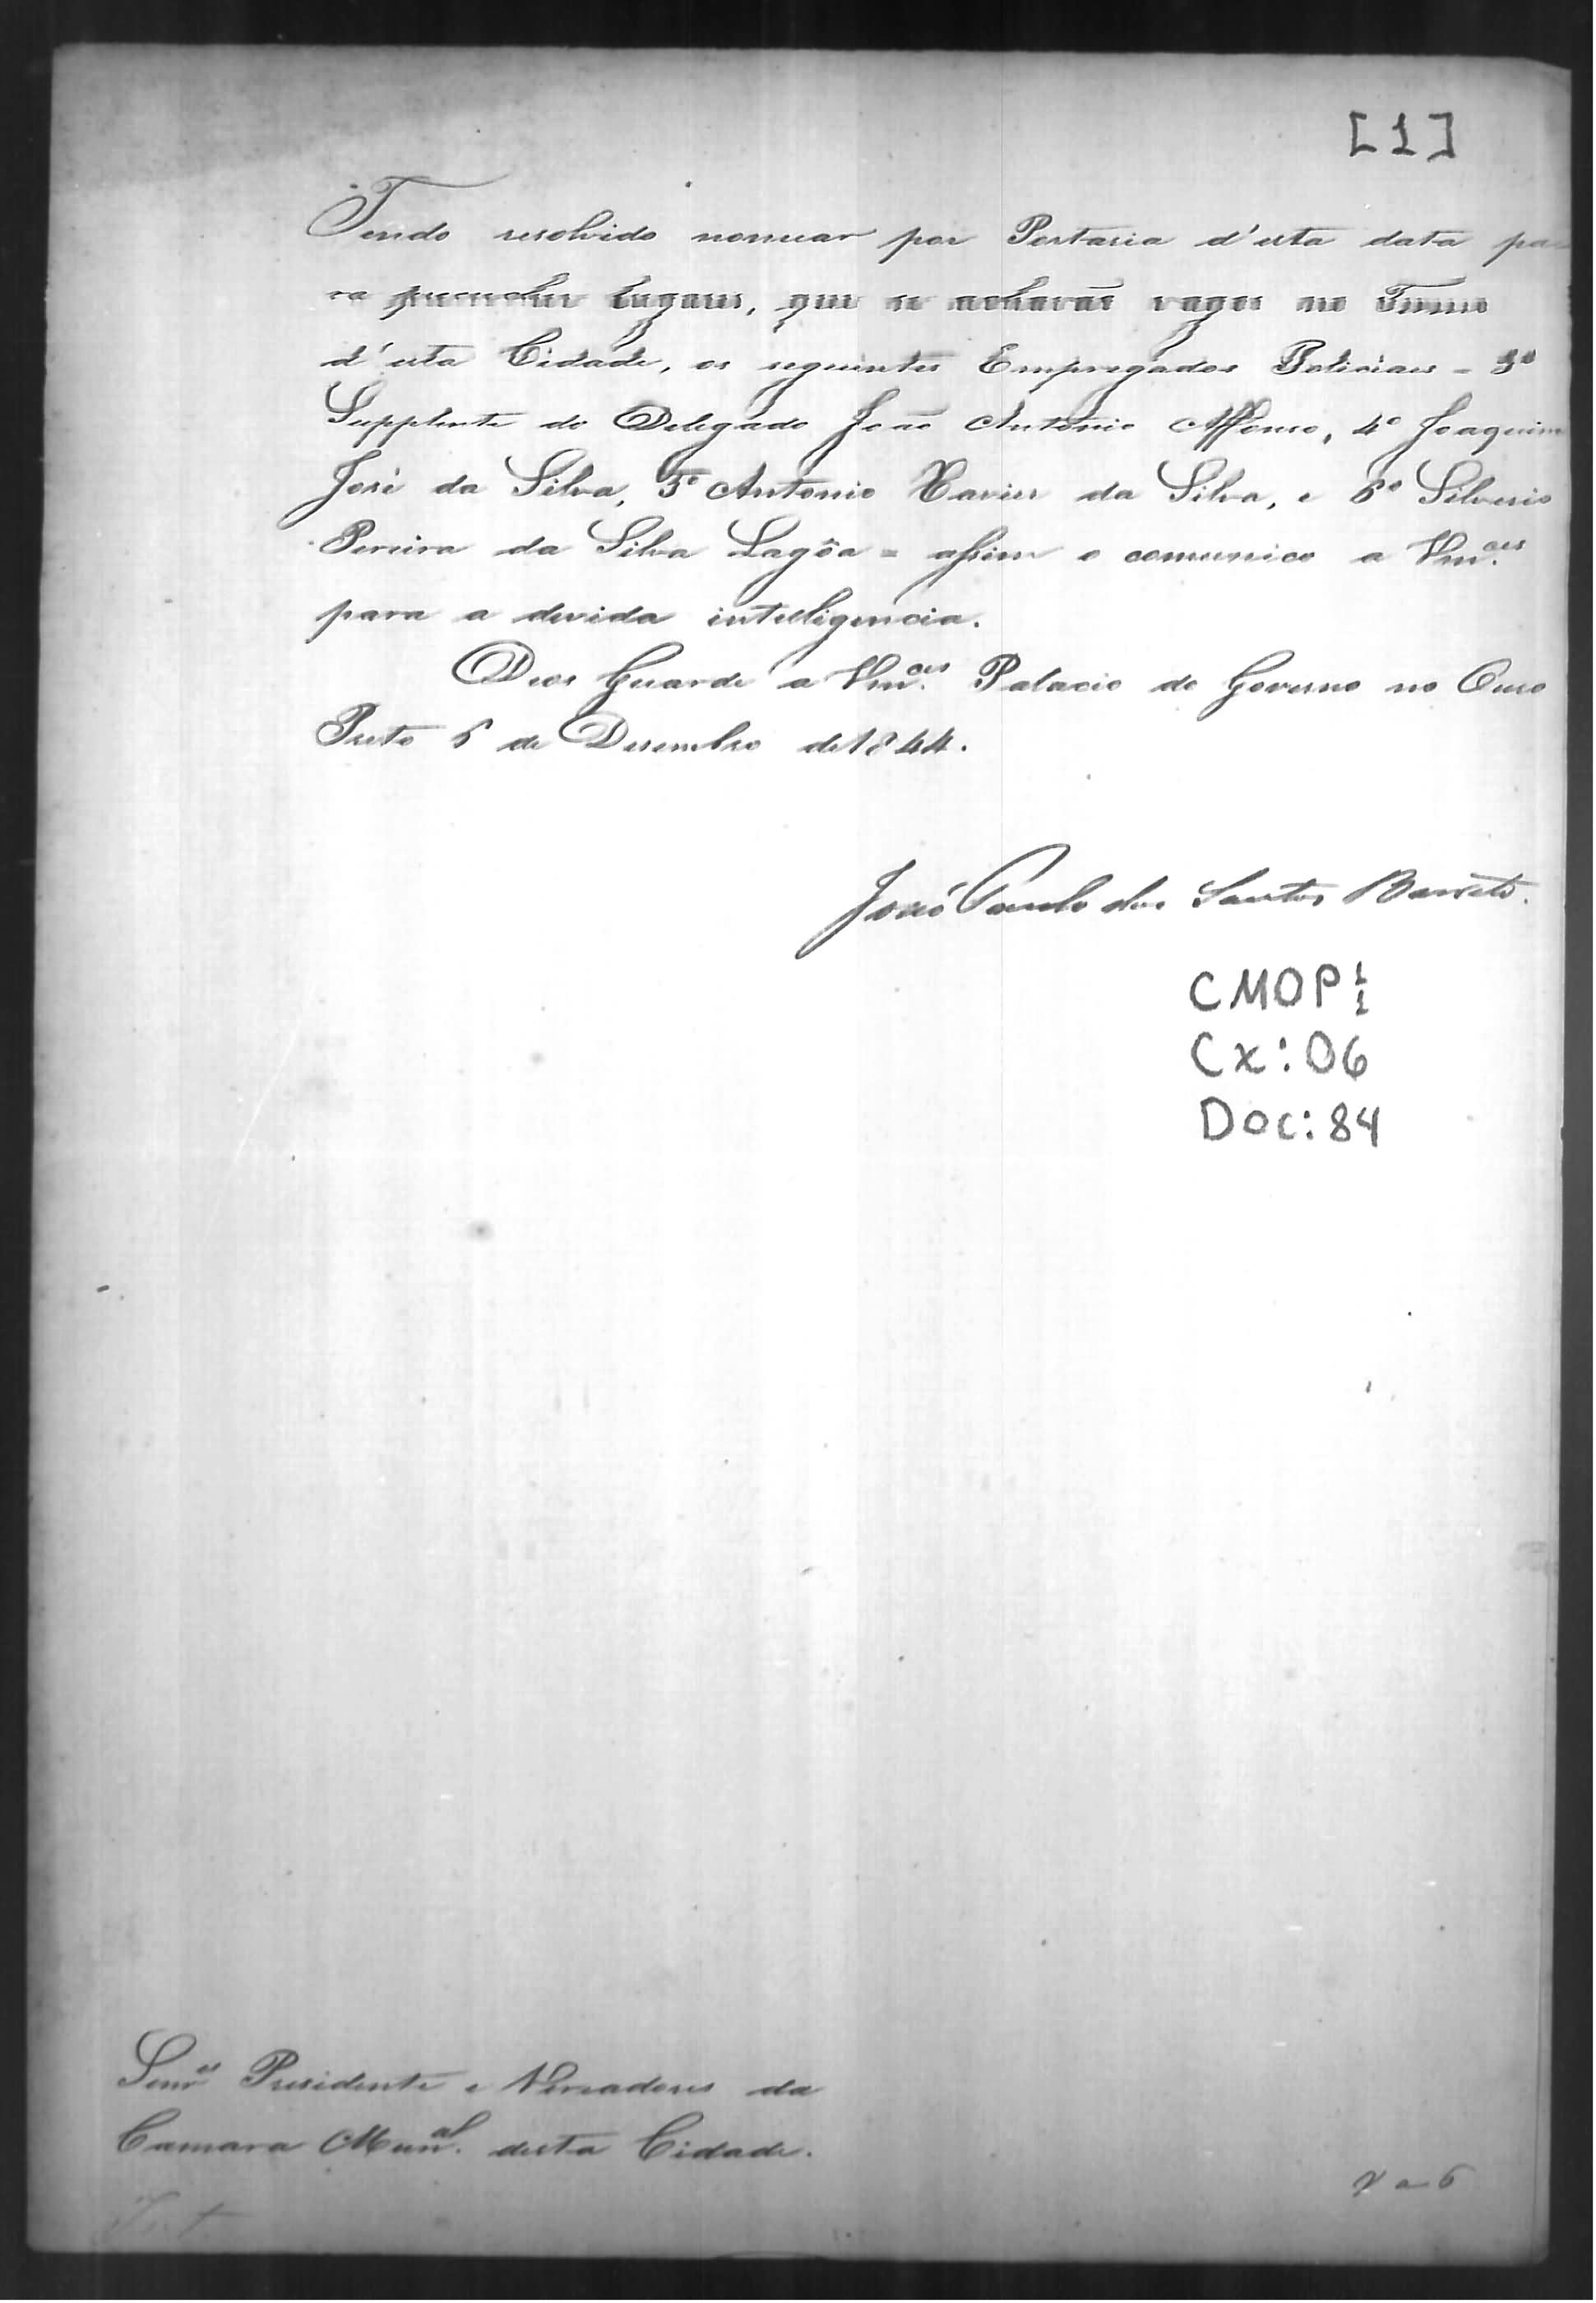 [1]
Tendo resolvido nomear por Portaria d'esta data pa
ra preencher lugares, que se achavaõ vagos no Termo
d'esta Cidade, os seguintes Empregados Policiaes = 3º
Supplente do Delegado Joaõ Antonio Affonso, 4º Joaquim
José da Silva, 5º Antonio Xavier da Silva, e 6º Silverio
Pereira da Silva Lagôa = assim o comunico a Vm.ces
para a devida intelligencia.
Deos Guarde a Vm.ces Palacio do Governo no Ouro
Preto 6 de Desembro de 1844.
Joaõ Paulo dos Santos Barreto.
CMOP 1/1
Cx: 06
Doc: 84
Senr.es Presidente e Vereadores da
Camara Mun.al desta Cidade.